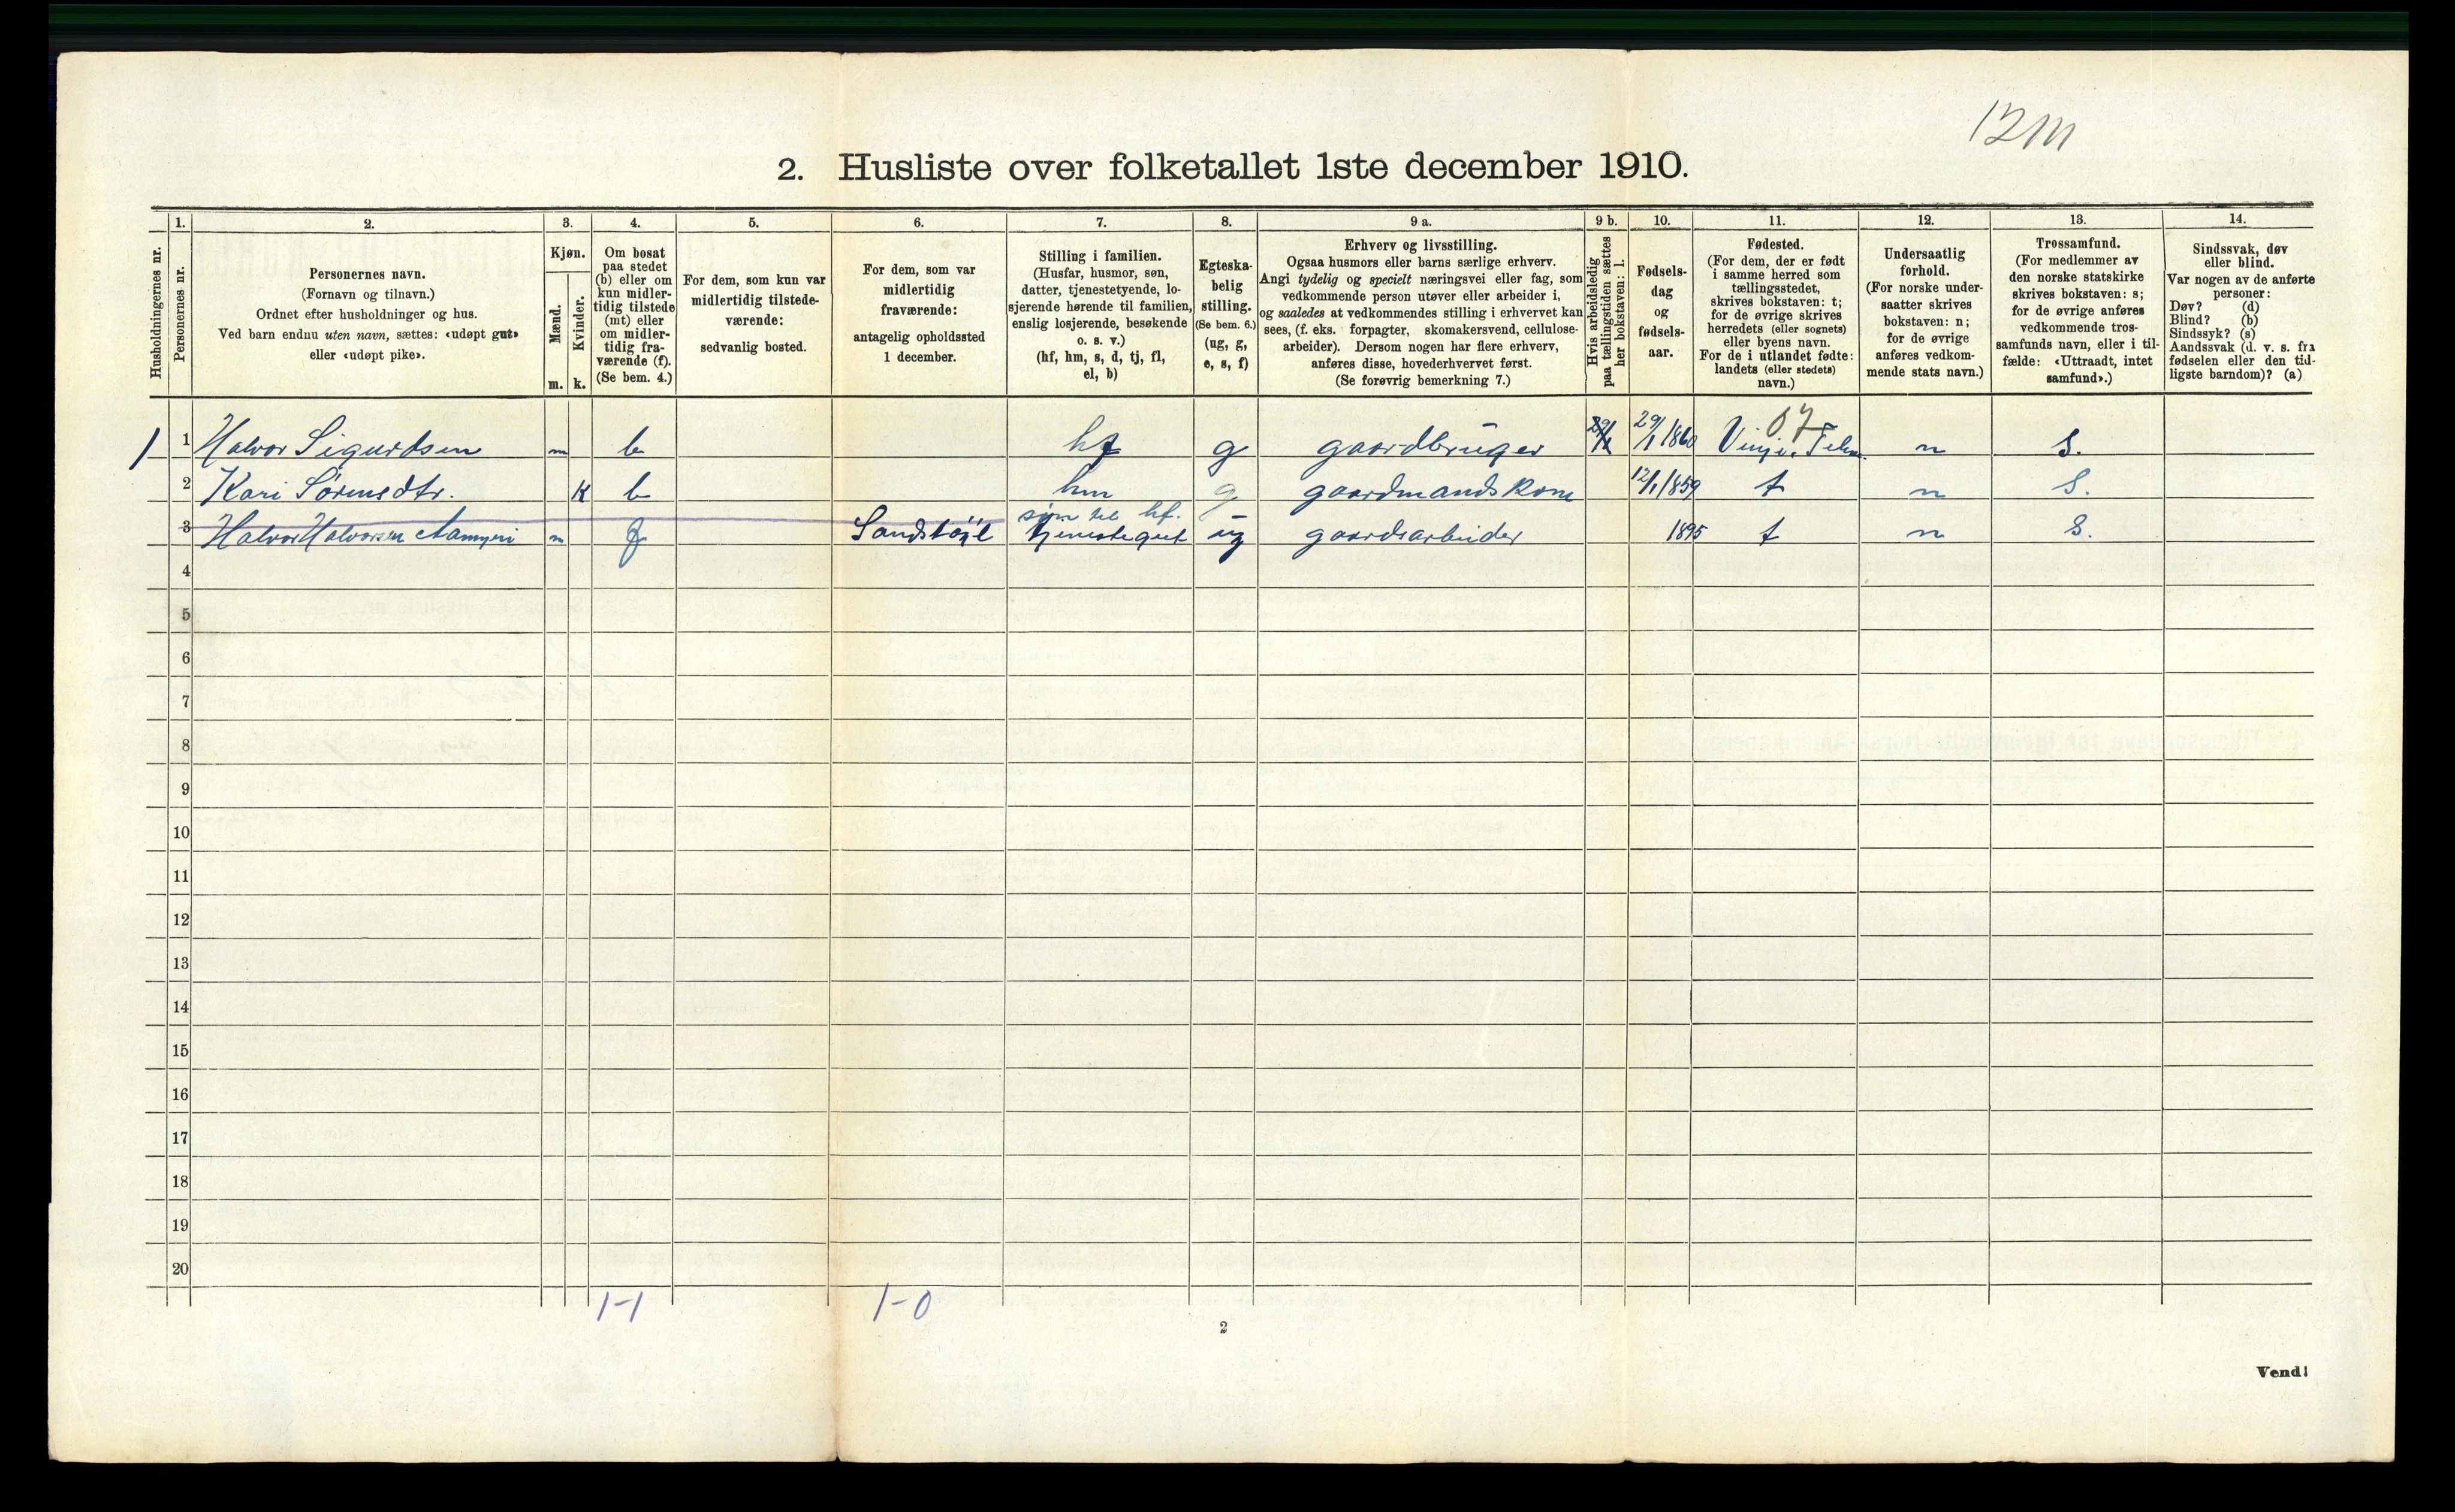 12m
2. Husliste over folketallet 1ste december 1910.
Husholdningernes nr.
1.
Personernes nr.
2.
Personernes navn.
(Fornavn og tilnavn.)
Ordnet efter husholdninger og hus.
Ved barn endnu uten navn, sættes: «udøpt gut»
eller «udøpt pike».
3.
Kjøn.
Mænd.
Kvinder.
m.
k.
4.
Om bosat
paa stedet
(b) eller om
kun midler-
tidig tilstede
(mt) eller
om midler-
tidig fra-
værende (f).
(Se bem. 4.)
5.
For dem, som kun var
midlertidig tilstede-
værende:
sedvanlig bosted.
6.
For dem, som var
midlertidig
fraværende:
antagelig opholdssted
1 december.
7.
Stilling i familien.
(Husfar, husmor, søn,
datter, tjenestetyende, lo-
sjerende hørende til familien,
enslig losjerende, besøkende
o. s. v.)
(hf, hm, s, d, tj, fl,
el, b)
8.
Egteska-
belig
stilling.
(Se bem. 6.)
(ug, g,
e, s, f)
9 a.
Erhverv og livsstilling.
Ogsaa husmors eller barns særlige erhverv.
Angi tydelig og specielt næringsvei eller fag, som
vedkommende person utøver eller arbeider i,
og saaledes at vedkommendes stilling i erhvervet kan
sees, (f. eks. forpagter, skomakersvend, cellulose-
arbeider). Dersom nogen har flere erhverv,
anføres disse, hovederhvervet først.
(Se forøvrig bemerkning 7.)
9 b.
Hvis arbeidsledig
paa tællingstiden sættes
her bokstaven: l.
10.
Fødsels-
dag
og
fødsels-
aar.
11.
Fødested.
(For dem, der er født
i samme herred som
tællingsstedet,
skrives bokstaven: t;
for de øvrige skrives
herredets (eller sognets)
eller byens navn.
For de i utlandet fødte:
landets (eller stedets)
navn.)
12.
Undersaatlig
forhold.
(For norske under-
saatter skrives
bokstaven: n;
for de øvrige
anføres vedkom-
mende stats navn.)
13.
Trossamfund.
(For medlemmer av
den norske statskirke
skrives bokstaven: s;
for de øvrige anføres
vedkommende tros-
samfunds navn, eller i til-
fælde: «Uttraadt, intet
samfund».)
14.
Sindssvak, døv
eller blind.
Var nogen av de anførte
personer:
Døv? (d)
Blind? (b)
Sindssyk? (s)
Aandssvak (d. v. s. fra
fødselen eller den tid-
ligste barndom)? (a)
07
1 1 Halvor Sigurdsen m b hf g gaardbruger 29/1 1860 Vinje, Telem. n s.
2 Kari Sørensdtr. k b hm g gaardmandskone 12/1 1859 t n s.
søn til hf.
3 Halvor Halvorsen m f Sandtøil tjenestegut ug gaardsarbeider 1895 t n s.
4
5
6
7
8
9
10
11
12
13
14
15
16
17
18
19
20
1-1 1-0
2
Vend!